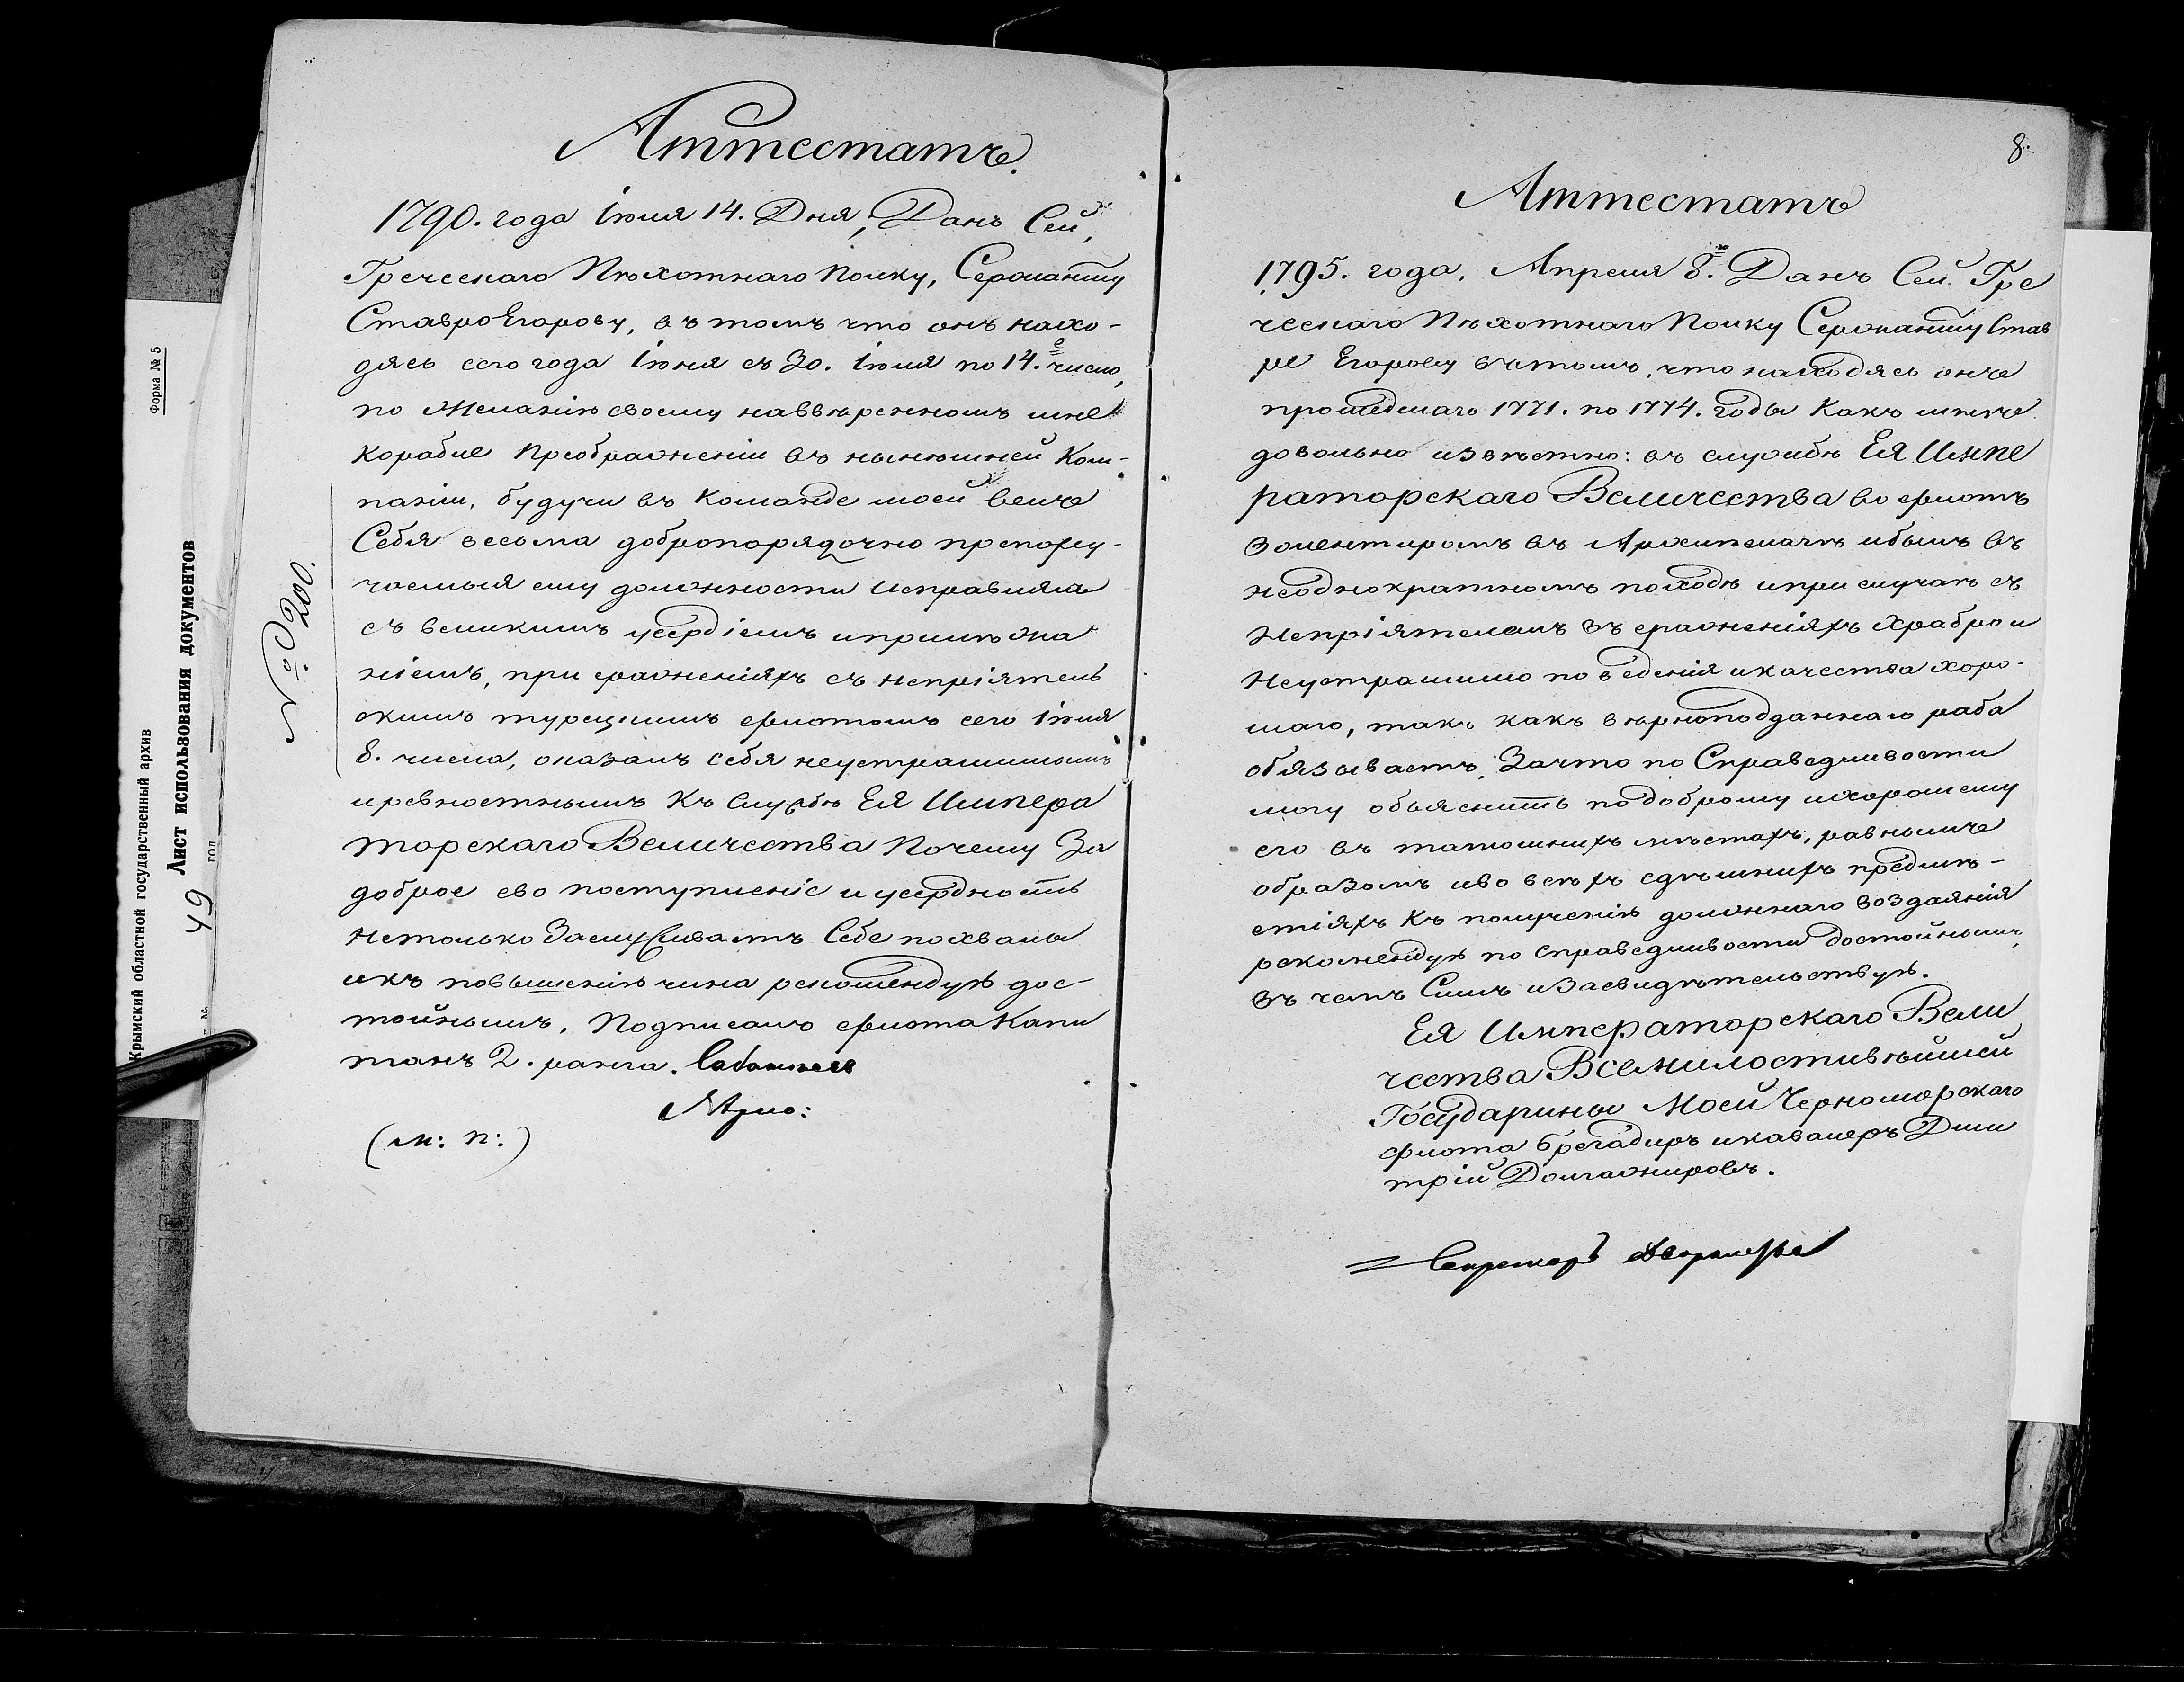 Аттестатъ.
1790. года Іюля 14. Дня, Данъ Сей,
Греческаго Пѣхотнаго Полку, Сержанту
Ставро Егорову, въ томъ что онъ нахо-
дясь сего года Іюня съ 30. Іюля по 14.е число,
по Желанію своему наввѣренномъ мне
корабле Преображеніи въ нынѣшней Ком-
паніи, будучи въ Команде моей велъ
Себя весьма добропорядочно препору-
чаемыя ему должности Исправляла
съ великимъ усердіемъ иприлѣжа
ніемъ, при сраженіяхъ съ непріятель
скимъ турецкимъ флотомъ сего Іюля
8. числа, оказалъ себя неустрашимымъ
иревностнымъ Къ Службѣ Ея Импера
торскаго Величества Почему За
доброе ево поступленіе и усердность
нетолько Заслуживаетъ Себе похвалы
икъ повышенію чина рекомендую дос-
тойнымъ. Подписано флота Капи
танъ 2. ранга.
(м: п:)
№ 200.
8.
Аттестатъ
1795. года, Апреля 8. Данъ Сей. Гре
ческаго Пѣхотнаго Полку Сержанту Став
ре Егорову вътомъ, что находясь онъ
прошедшаго 1771. по 1774. годы Какъ мнѣ
довольно извѣстно: въ службѣ Ея Импе
раторскаго Величества во флотѣ
Волентиромъ въ Архипелагѣ ибылъ въ
неоднократномъ походѣ ипри случаѣ съ
Непріятелемъ въ сраженіяхъ Храбро и
Неустрашимо поведенія икачества хоро-
шаго, такъ какъ вѣрноподданнаго раба
обязываетъ, Зачто по Справедливости
могу объяснить подоброму ихорошему
его въ тамошнихъ мѣстахъ, равнымъ
образомъ иво всѣхъ сдѣшнихъ предмѣ-
стіяхъ Къ полученію должнаго воздаянія
рекомендую по справедливости достойнымъ,
въ чемъ Симъ иЗасвидѣтельствую.
Ея Императорскаго Вели
чества Всемилостивѣйшей
Государыни Моей Черноморскаго
флота Брегадиръ икавалеръ Дми
трій Должировъ.
Секретарь
Форма № 5
Крымский областной государственный архив
Лист использования документов
49 год